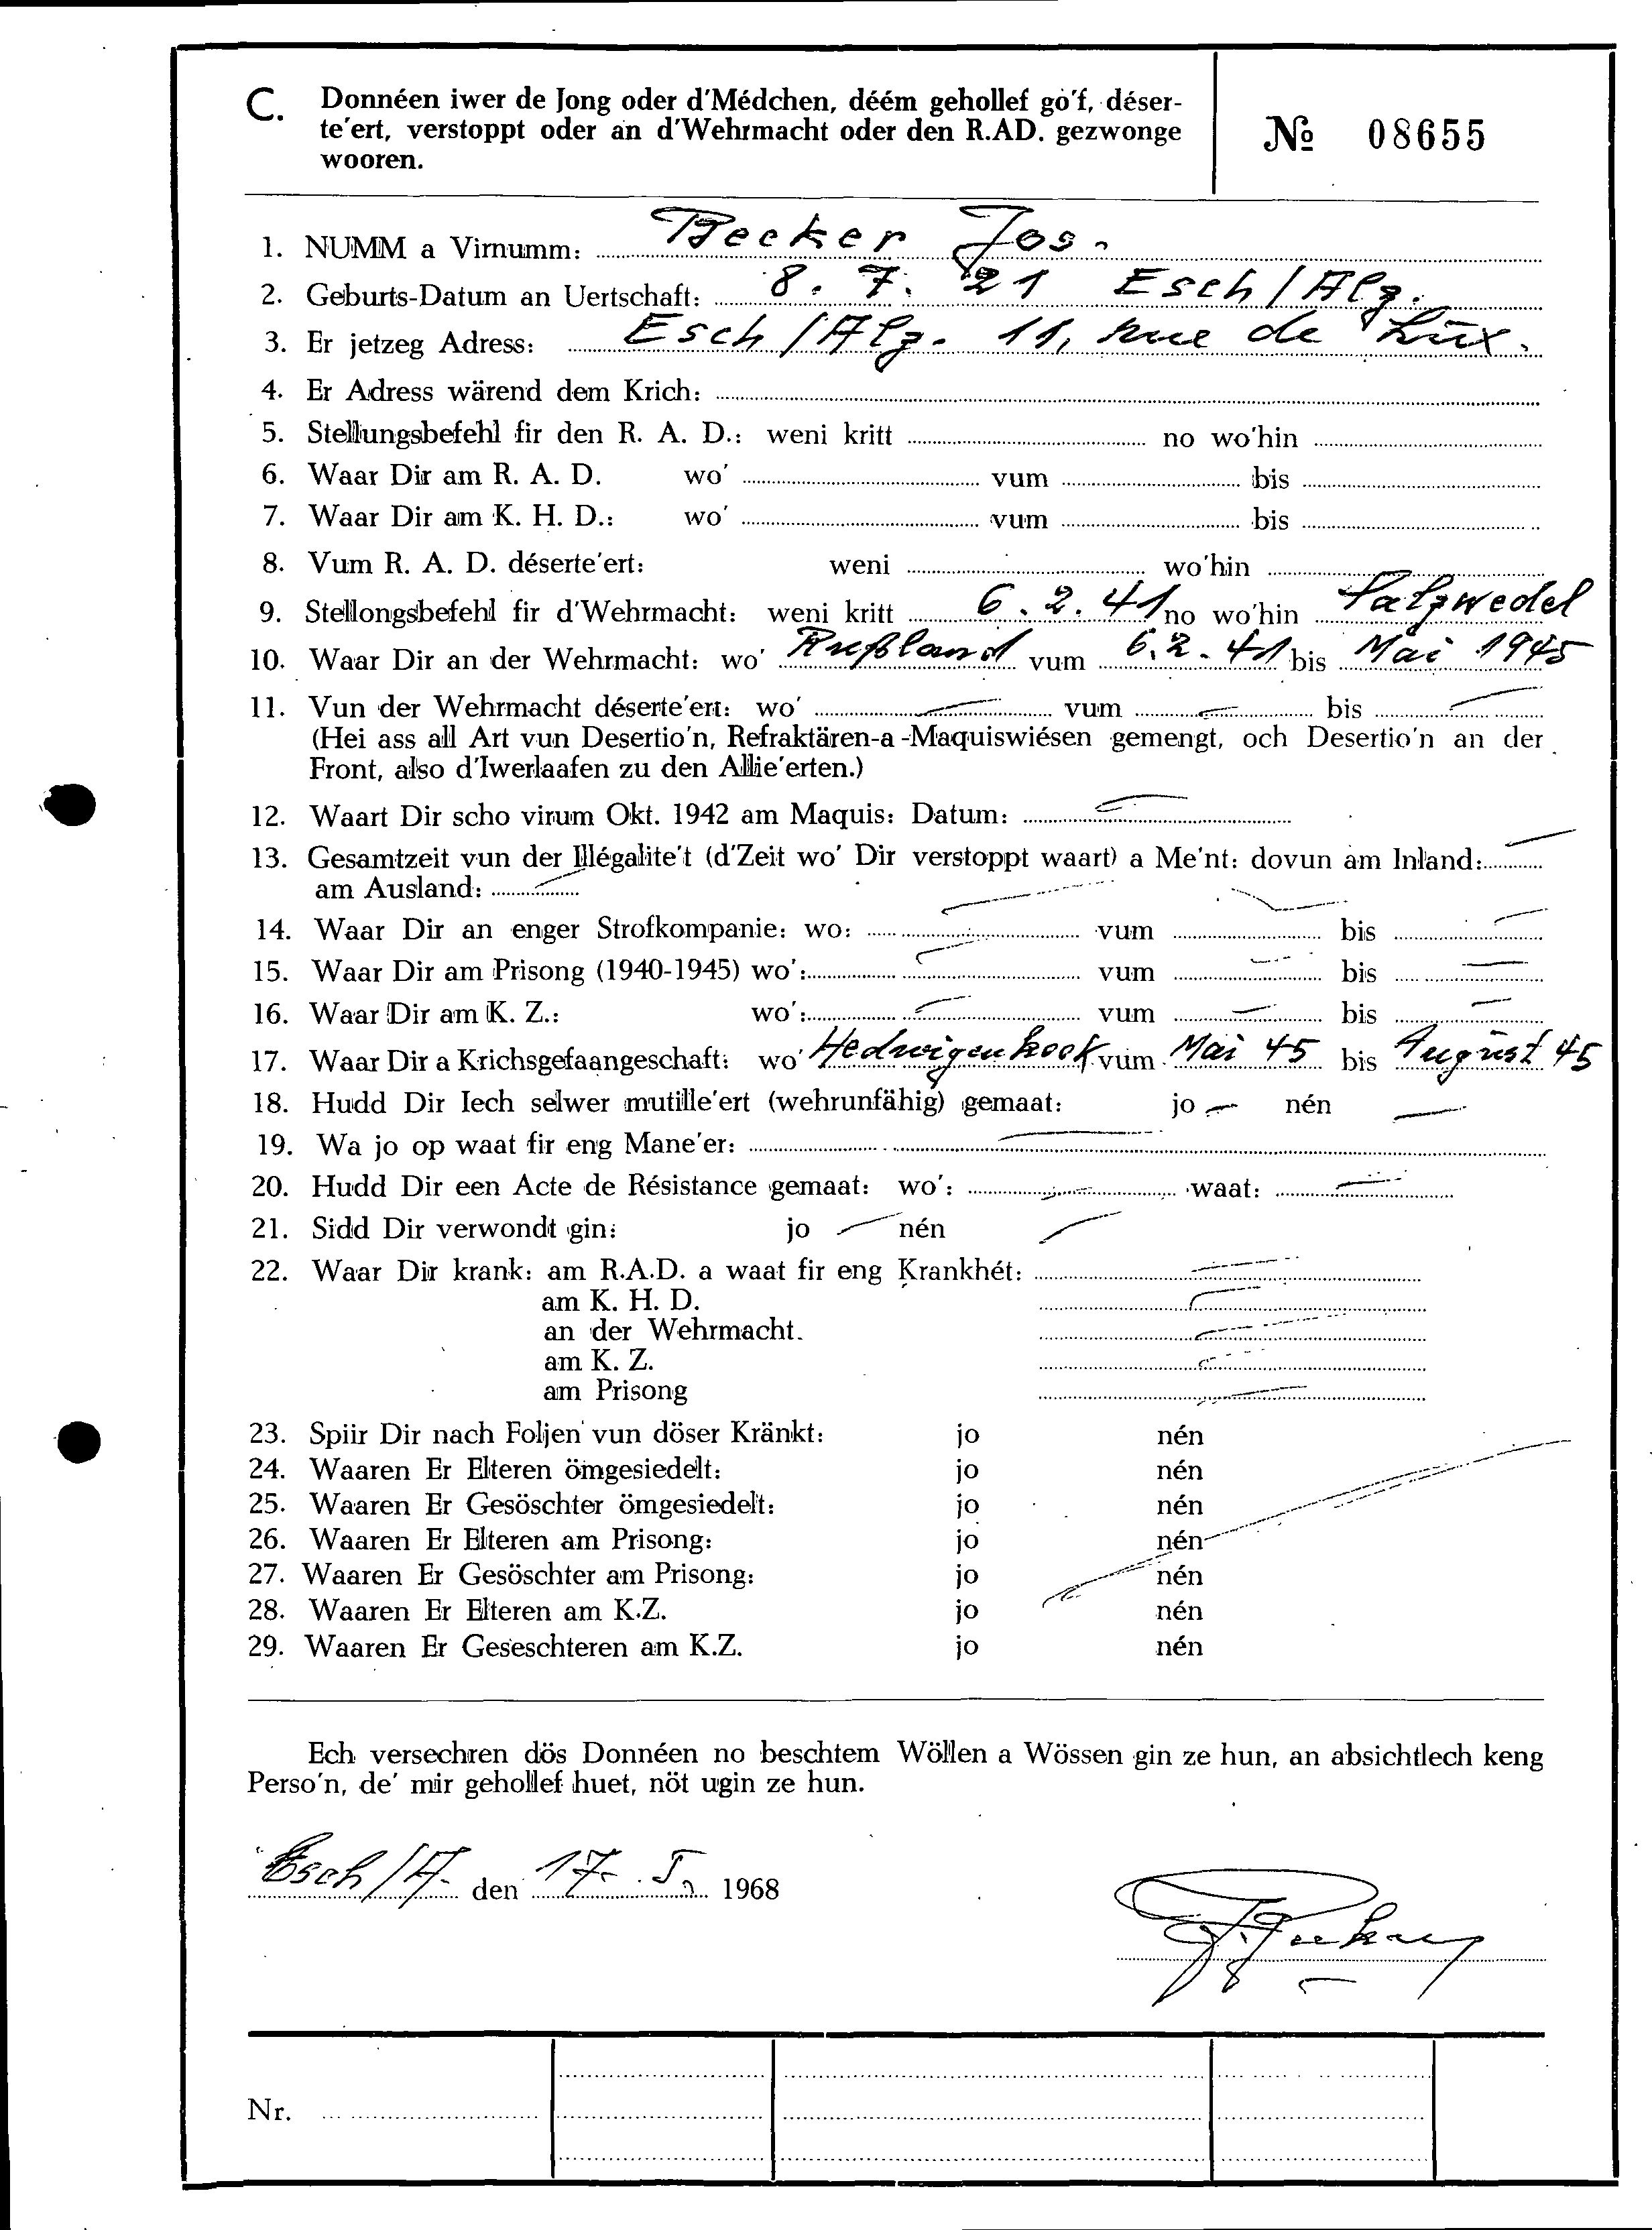 C. Donnéen iwer de Jong oder d'Médchen, déém gehollef go'f, déser-
te'ert, verstoppt oder an d'Wehrmacht oder den R.AD. gezwonge
wooren.
№ 08655
1. NUMM a Virnumm: Becker Jos.
2. Geburts-Datum an Uertschaft: 8. 7. 21 Esch/Alz.
3. Er jetzeg Adress: Esch/Alz. 11, rue de Lux.
4. Er Adress wärend dem Krich:
5. Stellungsbefehl fir den R. A. D.: weni kritt no wo'hin
6. Waar Dir am R. A. D. wo' vum bis
7. Waar Dir am K. H. D.: wo' vum bis
8. Vum R. A. D. déserte'ert: weni wo'hin
9. Stellongsbefehl fir d'Wehrmacht: weni kritt 6. 2. 41 no wo'hin Salzwedel
10. Waar Dir an der Wehrmacht: wo' Rußland vum 6. 2. 41 bis Mai 1945
11. Vun der Wehrmacht déserte'ert: wo' — vum — bis —
(Hei ass all Art vun Desertio'n, Refraktären-a-Maquiswiésen gemengt, och Desertio'n an der
Front, also d'Iwerlaafen zu den Allie'erten.)
12. Waart Dir scho virum Okt. 1942 am Maquis: Datum: —
13. Gesamtzeit vun der Illégalite't (d'Zeit wo' Dir verstoppt waart) a Me'nt: dovun am Inland: —
am Ausland: —
14. Waar Dir an enger Strofkompanie: wo: — vum — bis —
15. Waar Dir am Prisong (1940-1945) wo': — vum — bis —
16. Waar Dir am K. Z.: wo': — vum — bis —
17. Waar Dir a Krichsgefaangeschaft: wo' Hedwigenkook vum Mai 45 bis August 45
18. Hudd Dir Iech selwer mutille'ert (wehrunfähig) gemaat: jo — nén —
19. Wa jo op waat fir eng Mane'er: —
20. Hudd Dir een Acte de Résistance gemaat: wo': — waat: —
21. Sidd Dir verwondt gin: jo — nén —
22. Waar Dir krank: am R.A.D. a waat fir eng Krankhét: —
am K. H. D. —
an der Wehrmacht. —
am K. Z. —
am Prisong —
23. Spiir Dir nach Foljen vun döser Kränkt: jo nén
24. Waaren Er Elteren ömgesiedelt: jo nén
25. Waaren Er Gesöschter ömgesiedelt: jo nén
26. Waaren Er Elteren am Prisong: jo nén
27. Waaren Er Gesöschter am Prisong: jo nén
28. Waaren Er Elteren am K.Z. jo nén
29. Waaren Er Geseschteren am K.Z. jo nén
Ech versechren dös Donnéen no beschtem Wöllen a Wössen gin ze hun, an absichtlech keng
Perso'n, de' mir gehollef huet, nöt ugin ze hun.
Esch/A. den 17. 5. 1968
Nr.